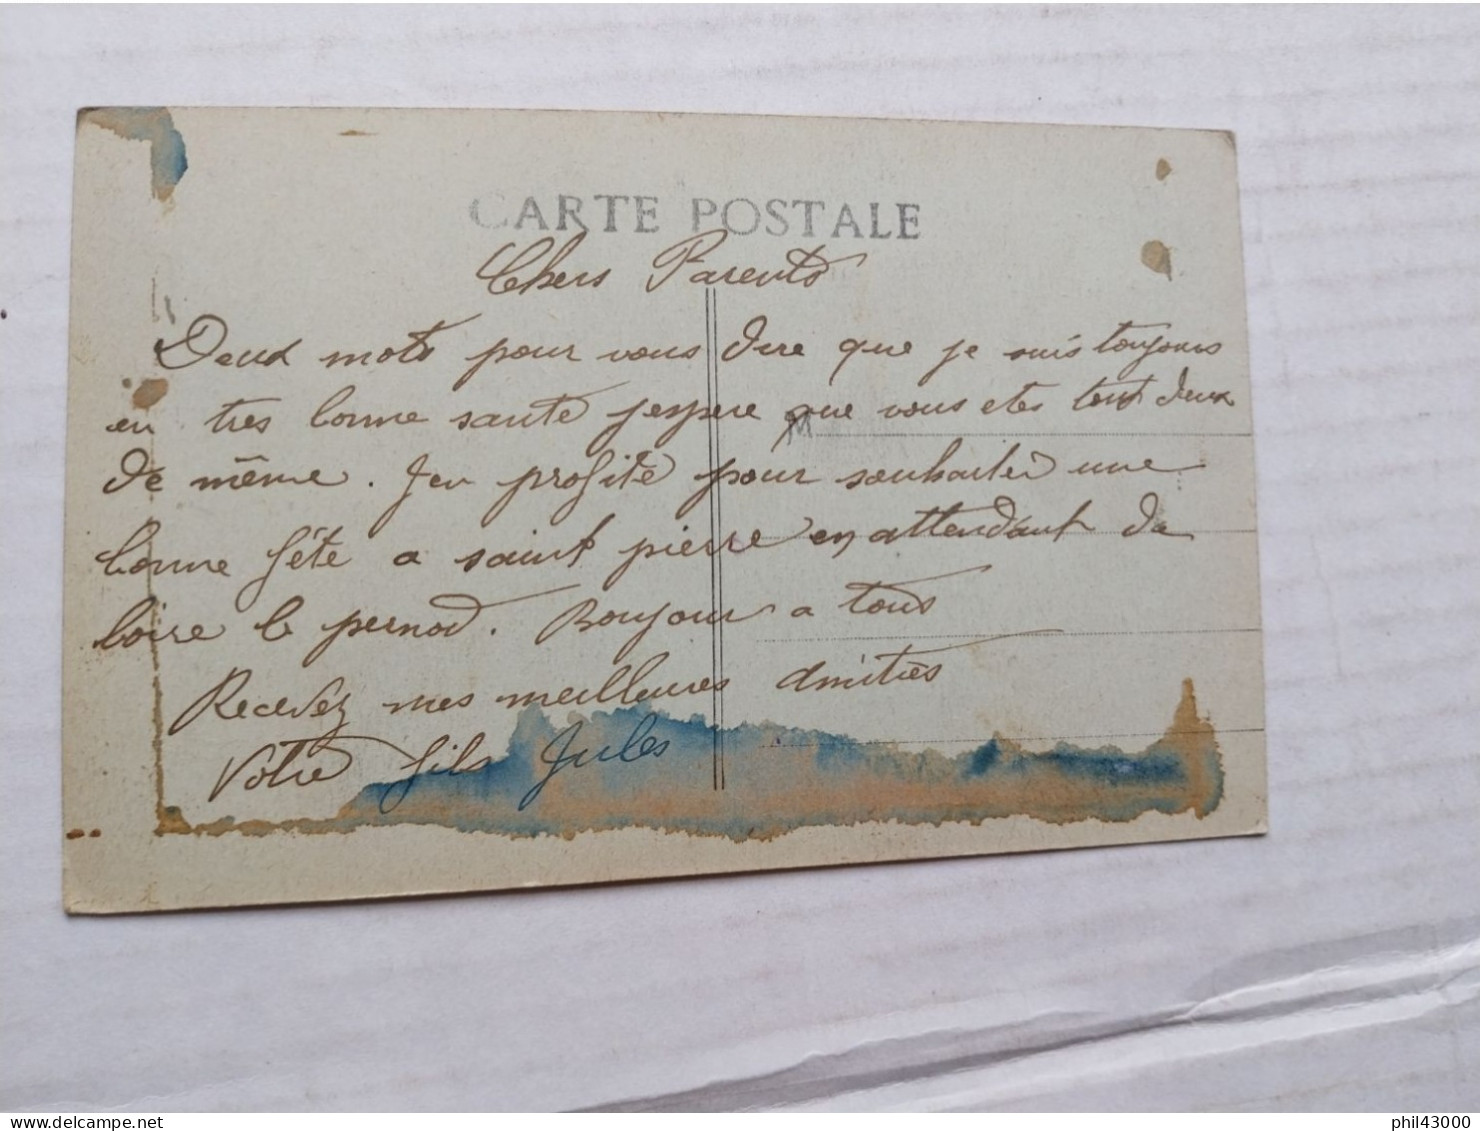 CARTE POSTALE
Chers Parents
Deux mots pour vous dire que je suis toujours
en tres bonne santé j'espere que vous etes tout deux
de même. J'en profite pour souhaiter une
bonne fête a saint pierre en attendant de
boire le pernod. Bonjour a tous
Recevez mes meilleures amitiés
Votre fils Jules
phil43000